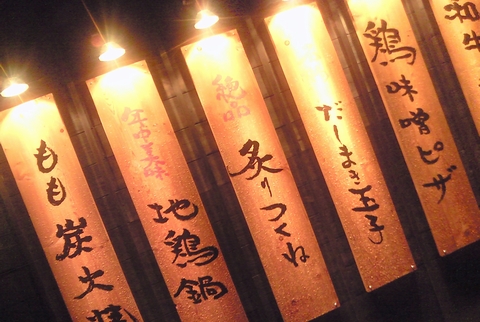 もも炭火焼
年中美味
地鶏鍋
絶品
炙りつくね
だしまき玉子
鶏味噌ピザ
和牛